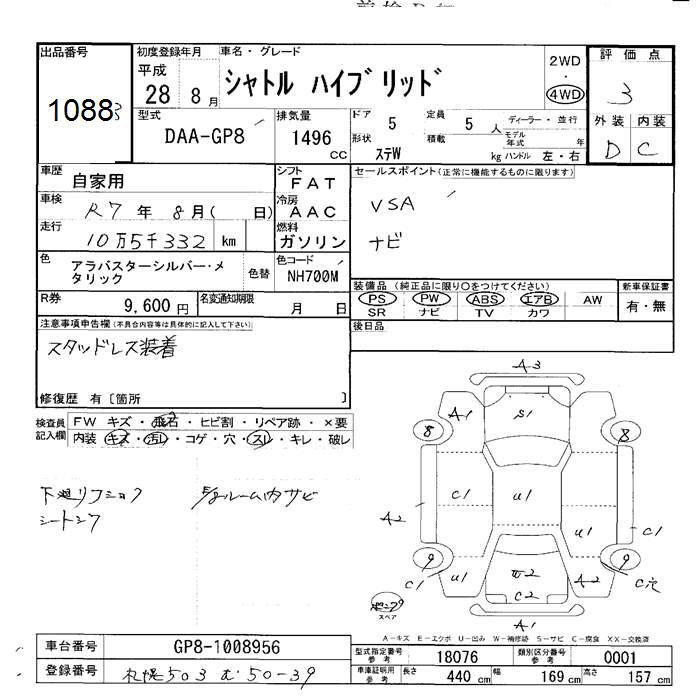 出品番号
10883
初度登録年月
平成
28 8月
車名・グレード
シャトル ハイブリッド
2WD
・
4WD
評価点
3
外装 内装
D C
型式
DAA-GP8
排気量
1496
CC
ドア 5
定員 5 人
ディーラー・並行
形状 ステW
積載 kg
モデル年式 年
ハンドル 左・右
車歴 自家用
シフト FAT
車検 R7年 8月( 日)
冷房 AAC
走行 10万5千332 km
燃料 ガソリン
色 アラバスターシルバー・メタリック
色替
色コード NH700M
R券 9,600円
名変通知期限 月 日
セールスポイント(正常に機能するものに限ります)
VSA
ナビ
装備品(純正品に限り○をつけてください)
PS PW ABS エアB AW
SR ナビ TV カワ
新車保証書
有・無
後日品
注意事項申告欄(不具合内容等は具体的に記入して下さい)
スタッドレス装着
修復歴 有〔箇所 〕
検査員記入欄
FW キズ・飛石・ヒビ割・リペア跡・×要
内装 キズ・汚レ・コゲ・穴・スレ・キレ・破レ
シートシワ
A3
A1
S1
8
8
C1
U1
A2
U1
C1
9
9
C1
U1
A2
C穴
C2
A1
スペア
A-キズ E-エクボ U-凹み W-補修跡 S-サビ C-腐食 XX-交換済
車台番号 GP8-1008956
登録番号 札幌503 む50-39
型式指定番号 参考 18076
類別区分番号 参考 0001
車庫証明用 参考 長さ 440 cm 幅 169 cm 高さ 157 cm